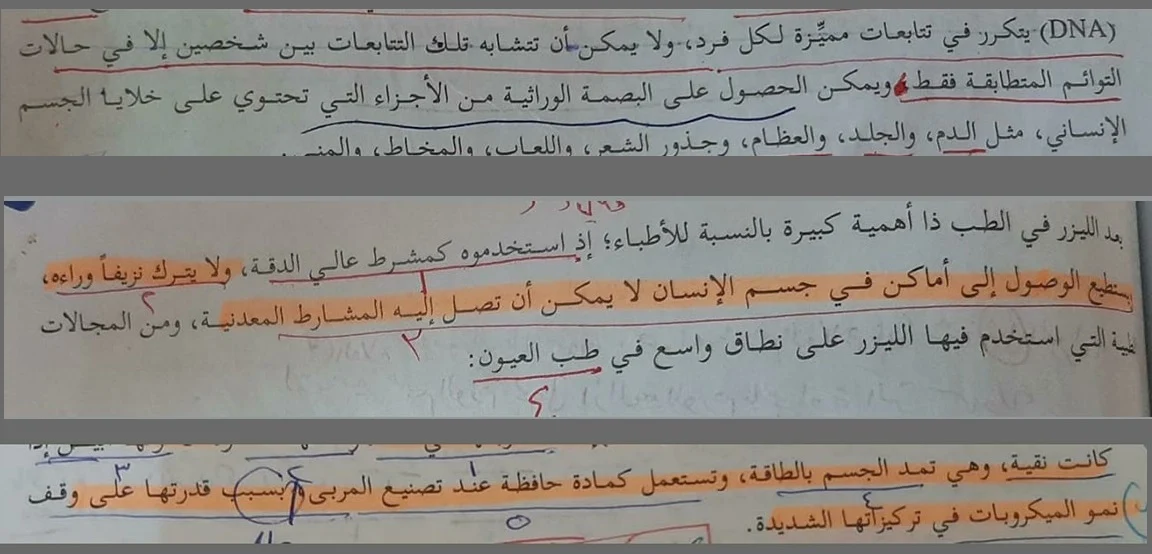 (DNA) يتكرر في تتابعات مميِّزة لكل فرد، ولا يمكن أن تتشابه تلك التتابعات بين شخصين إلا في حالات
التوائم المتطابقة فقط، ويمكن الحصول على البصمة الوراثية من الأجزاء التي تحتوي على خلايا الجسم
الإنساني، مثل الدم، والجلد، والعظام، وجذور الشعر، واللعاب، والمخاط، والمني.
يعد الليزر في الطب ذا أهمية كبيرة بالنسبة للأطباء؛ إذ استخدموه كمشرط عالي الدقة، ولا يترك نزيفاً وراءه،
يستطيع الوصول إلى أماكن في جسم الإنسان لا يمكن أن تصل إليه المشارط المعدنية، ومن المجالات
التي استخدم فيها الليزر على نطاق واسع في طب العيون:
١
٢
٣
٤
كانت نقية، وهي تمد الجسم بالطاقة، وتستعمل كمادة حافظة عند تصنيع المربى بسبب قدرتها على وقف
نمو الميكروبات في تركيزاتها الشديدة.
١
٢
٣
٤
٥